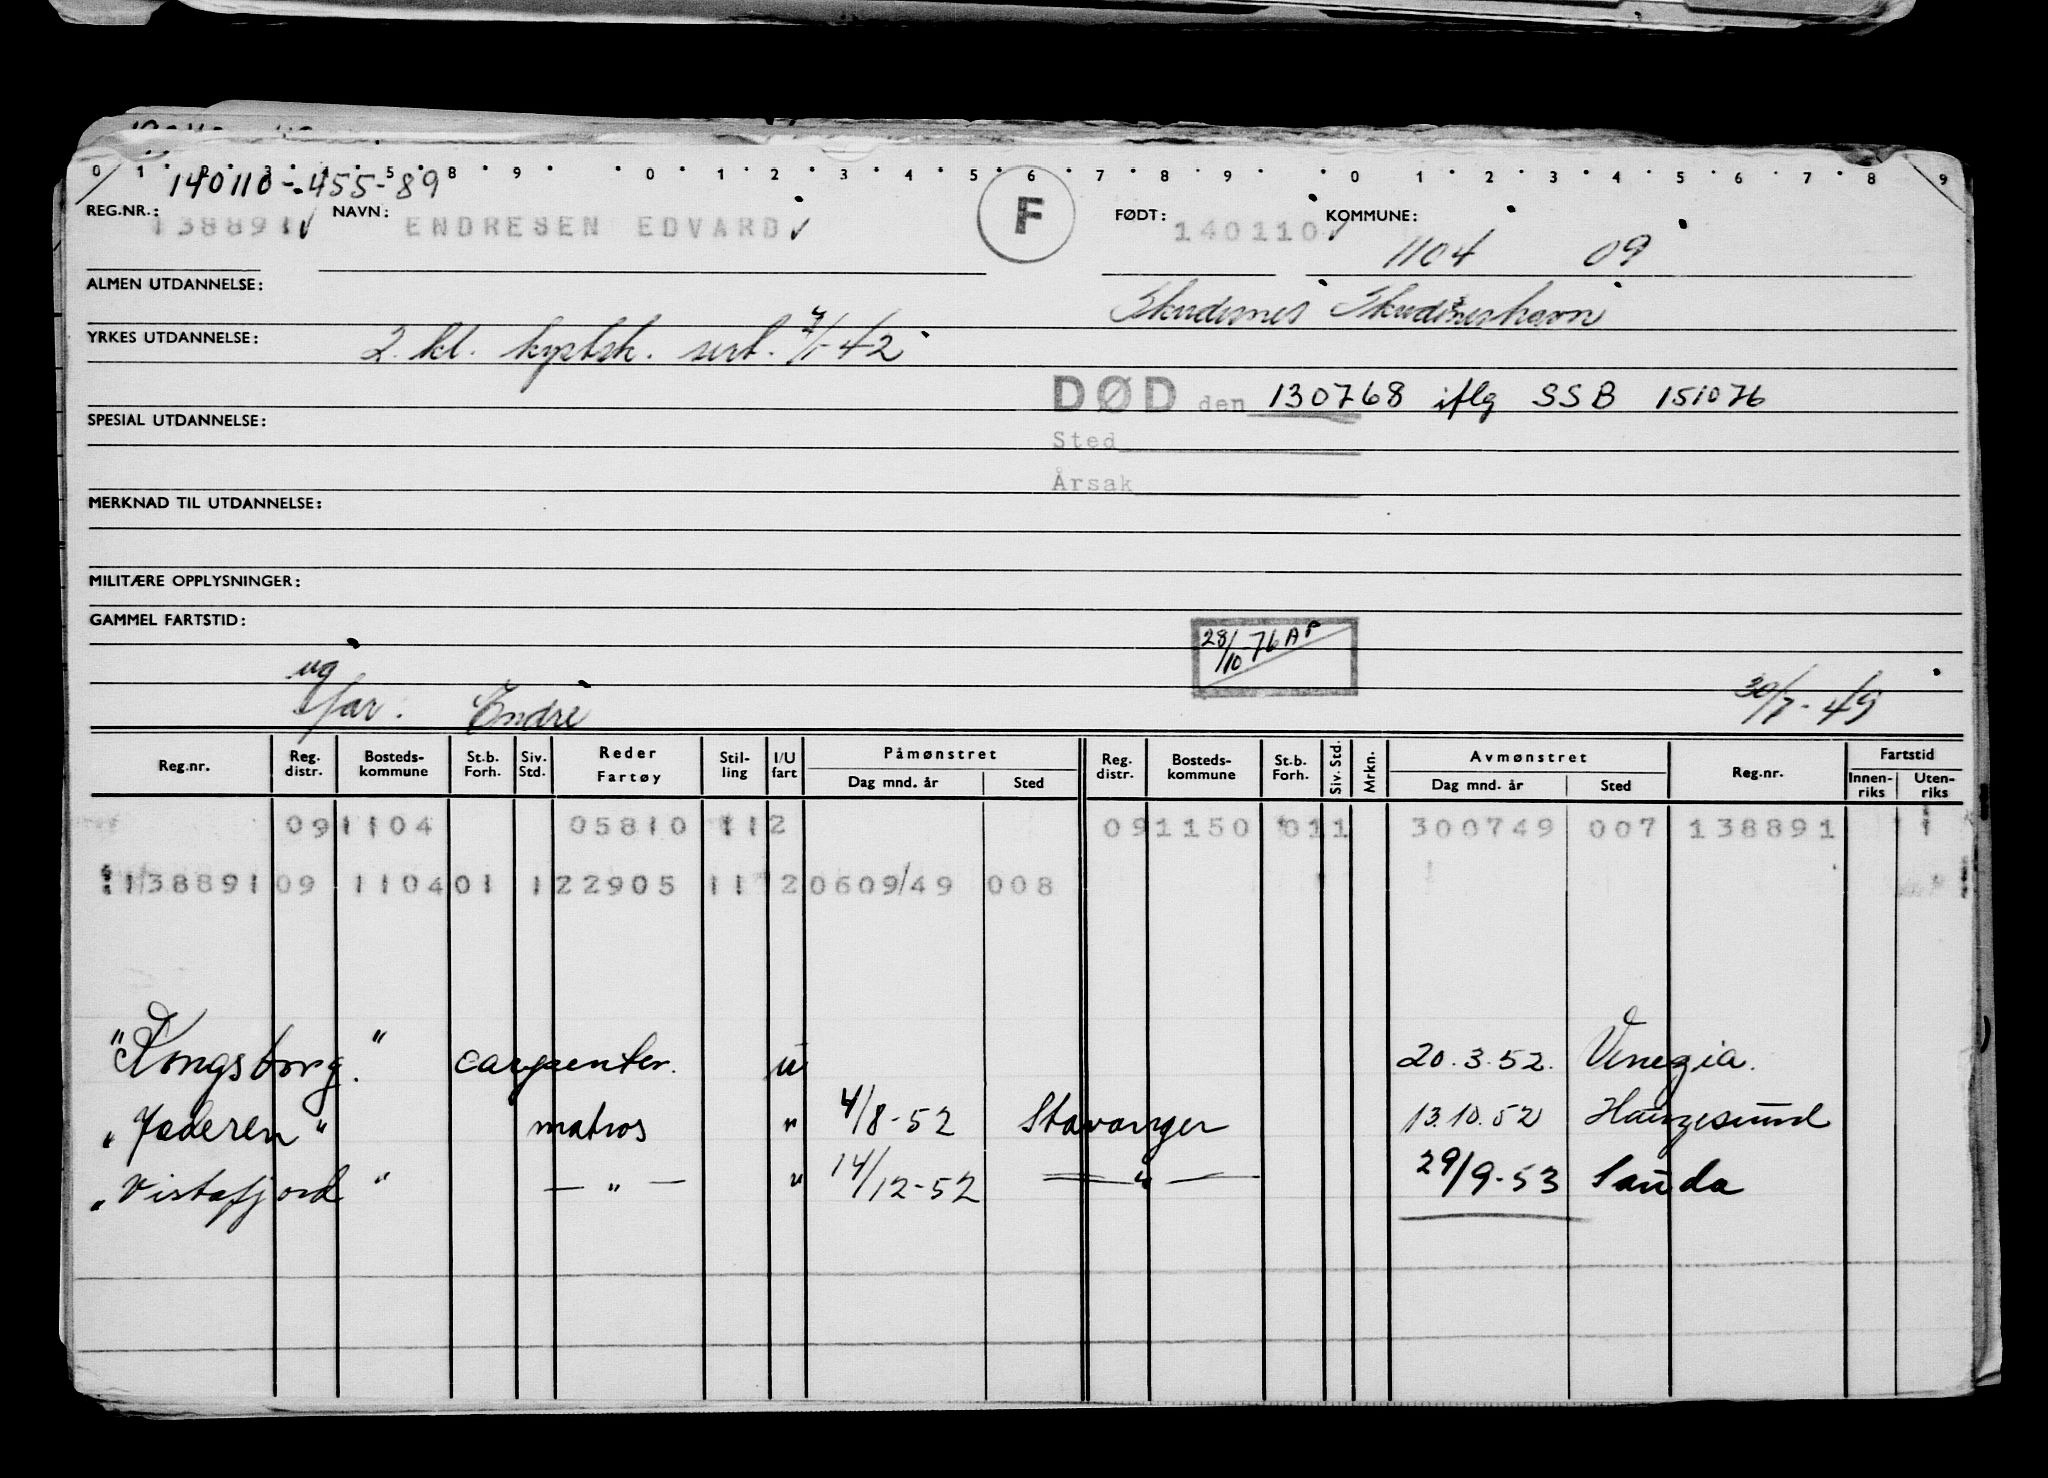 0 1 2 3 4 5 8 9 0 1 2 3 4 5 6 7 8 9 0 1 2 3 4 5 6 7 8 9
140110-455-89
REG.NR.: 138891 ✓ NAVN: ENDRESEN EDVARD ✓ F FØDT: 140110 ✓ KOMMUNE:
1104 09
ALMEN UTDANNELSE:
Skudesnes Skudeneshavn
YRKES UTDANNELSE: 2. kl. kystsk. sert. 7/1-42
DØD den 130768 iflg SSB 151076
SPESIAL UTDANNELSE:
Sted
Årsak
MERKNAD TIL UTDANNELSE:
MILITÆRE OPPLYSNINGER:
GAMMEL FARTSTID:
28/10-76 AP
ug
far: Endre 30/7-49
Reg.nr. Reg. distr. Bosteds-kommune St.b. Forh. Siv. Std. Reder Fartøy Stil-ling I/U fart Påmønstret Dag mnd. år Sted Reg. distr. Bosteds-kommune St.b. Forh. Siv. Std. Mrkn. Avmønstret Dag mnd. år Sted Reg.nr. Fartstid Innen-riks Uten-riks
09 1104 05810 11 2 09 1150 01 1 300749 007 138891 1
138891 09 1104 01 1 22905 11 2 0609/49 008
"Kongsborg." carpenter. u 20.3.52. Venezia.
"Jæderen" matros " 4/8-52 Stavanger 13.10.52 Haugesund
"Vistafjord" — " — " 14/12-52 — " — 29/9-53 Sauda